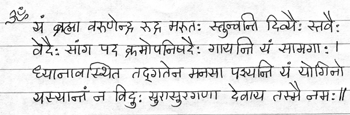 ॐ यं ब्रह्मा वरुणेन्द्र रुद्र मरुतः स्तुन्वन्ति दिव्यैः स्तवैः
वेदैः सांग पद क्रमोपनिषदैः गायन्ति यं सामगाः ।
ध्यानावस्थित तद्गतेन मनसा पश्यन्ति यं योगिनो
यस्यान्तं न विदुः सुरासुरगणा देवाय तस्मै नमः ॥